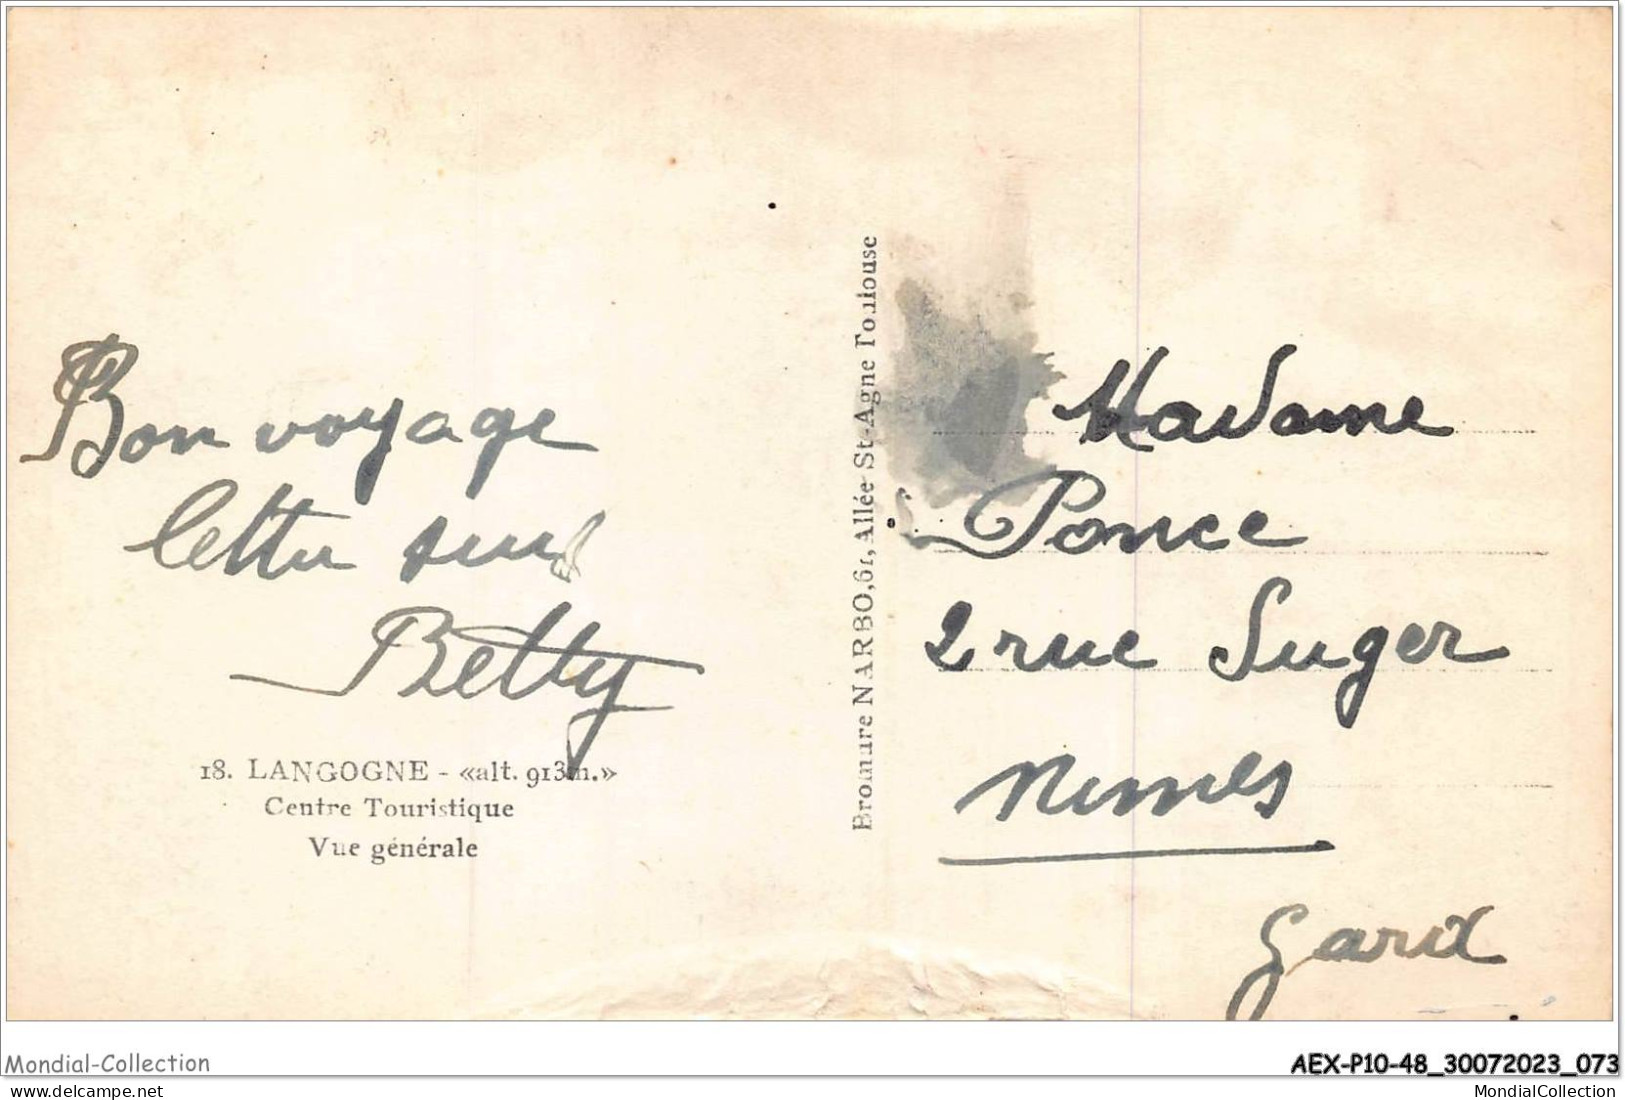 Bon voyage
lettre suit
Betty
18. LANGOGNE - «alt. 913m.»
Centre Touristique
Vue générale
Bromure NARBO, 61, Allée St-Agne Toulouse
Madame
Ponce
2 rue Suger
Nimes
Gard
Mondial-Collection
AEX-P10-48_30072023_073
MondialCollection